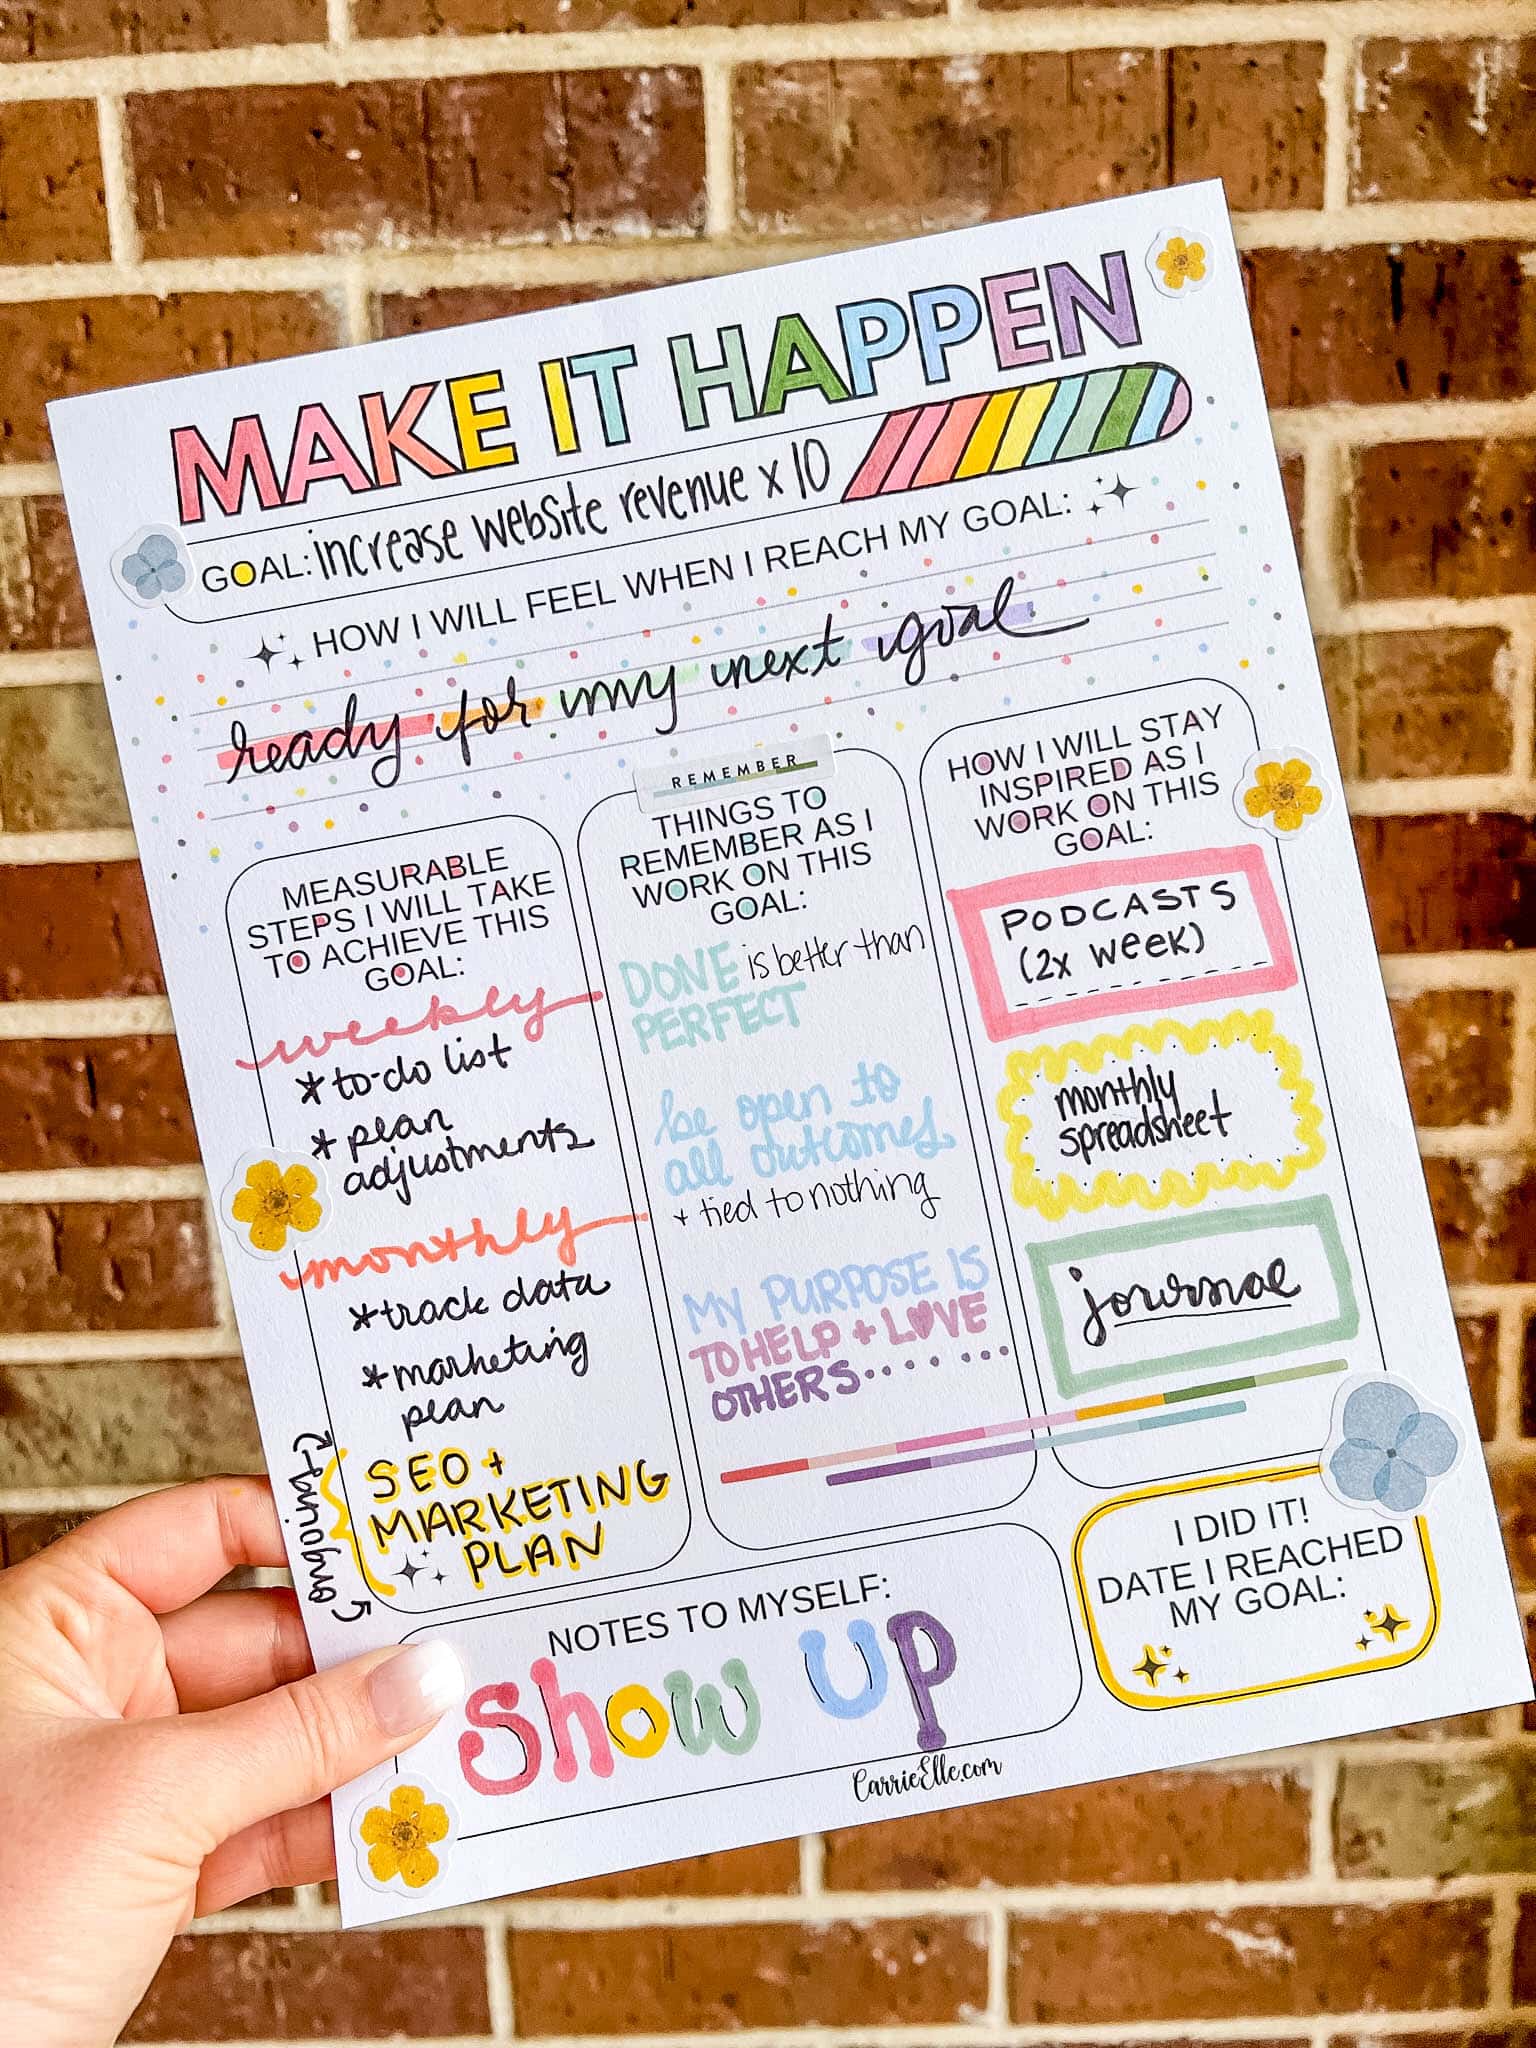 MAKE IT HAPPEN
GOAL: increase website revenue x 10
HOW I WILL FEEL WHEN I REACH MY GOAL:
ready for my next goal
MEASURABLE
STEPS I WILL TAKE
TO ACHIEVE THIS
GOAL:
weekly
*to-do list
*plan
adjustments
monthly
*track data
*marketing
plan
ongoing
SEO +
MARKETING
PLAN
REMEMBER
THINGS TO
REMEMBER AS I
WORK ON THIS
GOAL:
DONE is better than
PERFECT
be open to
all outcomes
+ tied to nothing
MY PURPOSE IS
TO HELP + LOVE
OTHERS........
HOW I WILL STAY
INSPIRED AS I
WORK ON THIS
GOAL:
PODCASTS
(2x week)
monthly
spreadsheet
journal
NOTES TO MYSELF:
Show up
I DID IT!
DATE I REACHED
MY GOAL:
CarrieElle.com